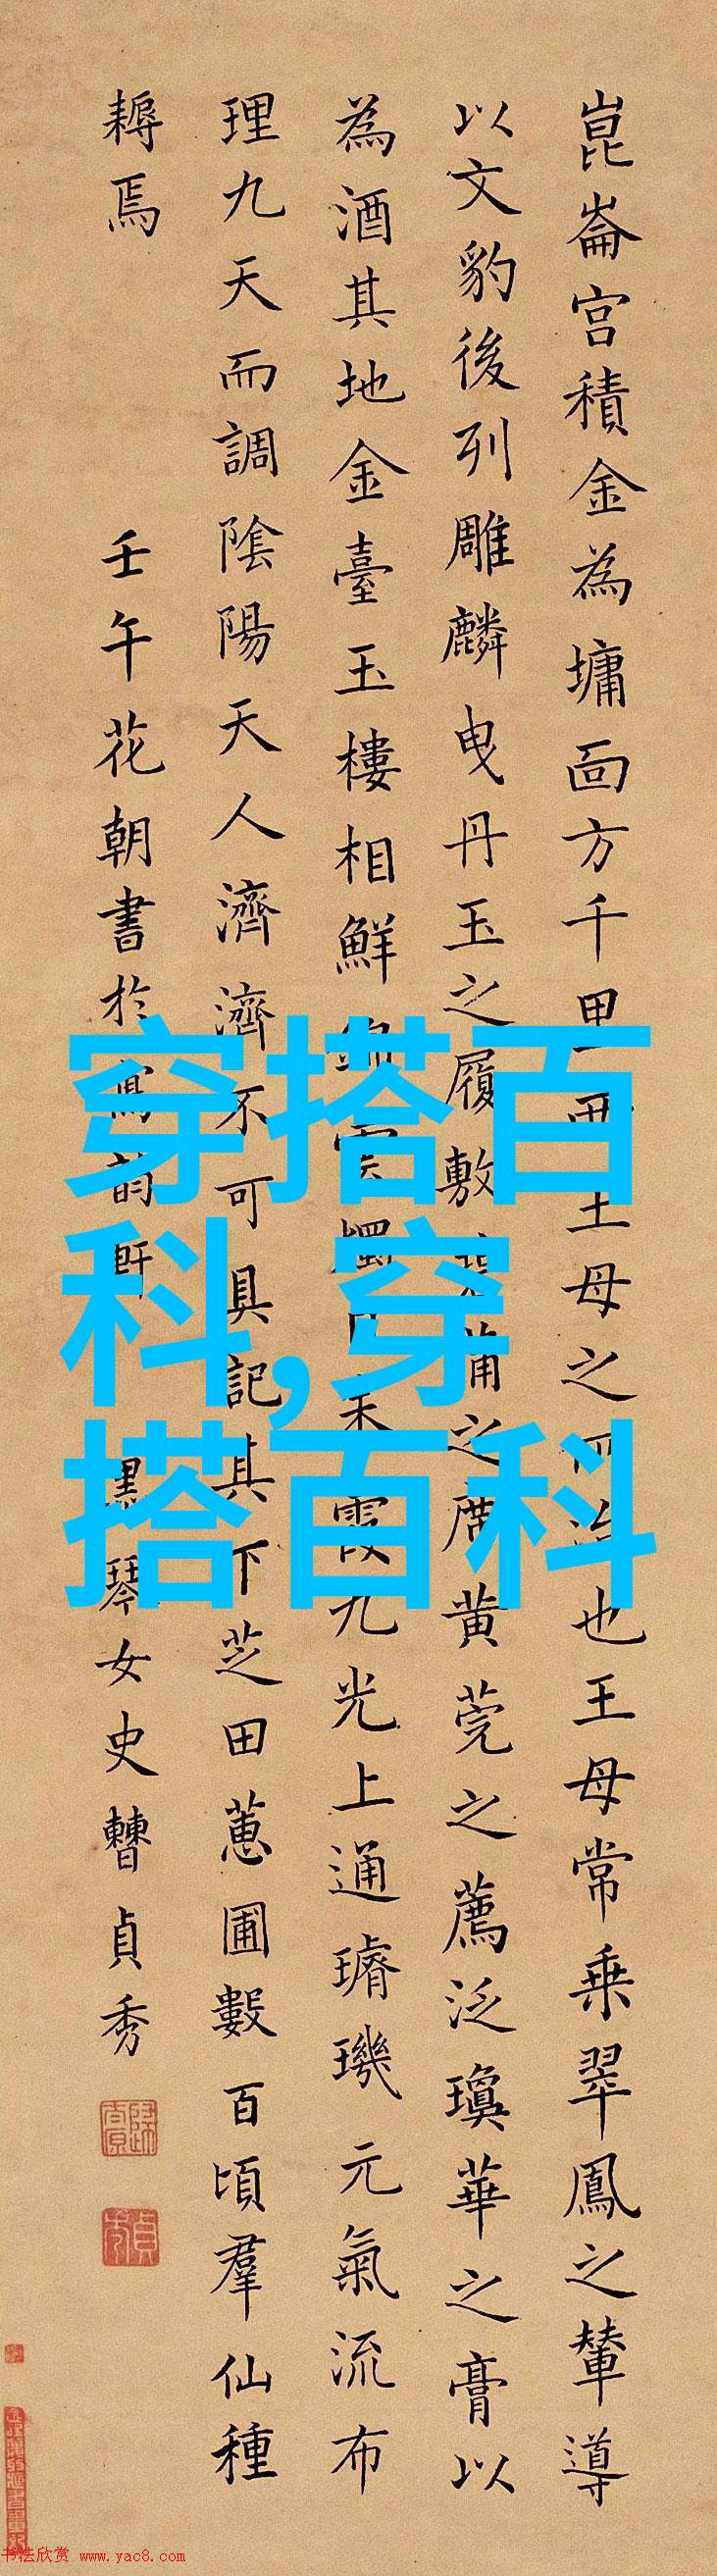 崑崙宮積金為墉面方千里西王母之所治也王母常乗翠鳳之輦導
以文豹後列雕麟曳丹玉之履敷碧蒲之席黄莞之薦泛瓊華之膏以
為酒其地金臺玉樓相鮮 霞九光上通璿璣元氣流布
理九天而調陰陽天人濟濟不可具記其下芝田蕙圃數百頃羣仙種
耨焉
壬午花朝書於寫韵軒 墨琴女史曹貞秀
穿搭百
科,穿
搭百科
书法欣赏 www.yac8.com